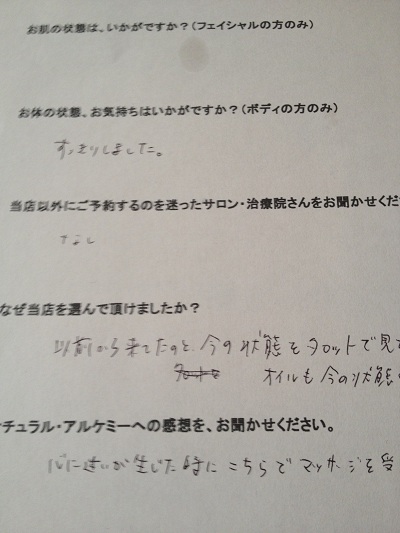 お肌の状態は、いかがですか？（フェイシャルの方のみ）
お体の状態、お気持ちはいかがですか？（ボディの方のみ）
すっきりしました。
当店以外にご予約するのを迷ったサロン・治療院さんをお聞かせくだ
なし
なぜ当店を選んで頂けましたか？
以前から来てたのと、今の状態をタロットで見て
オイルも今の状態
チュラル・アルケミーへの感想を、お聞かせください。
心に迷いが生じた時に こちらで マッサージを受